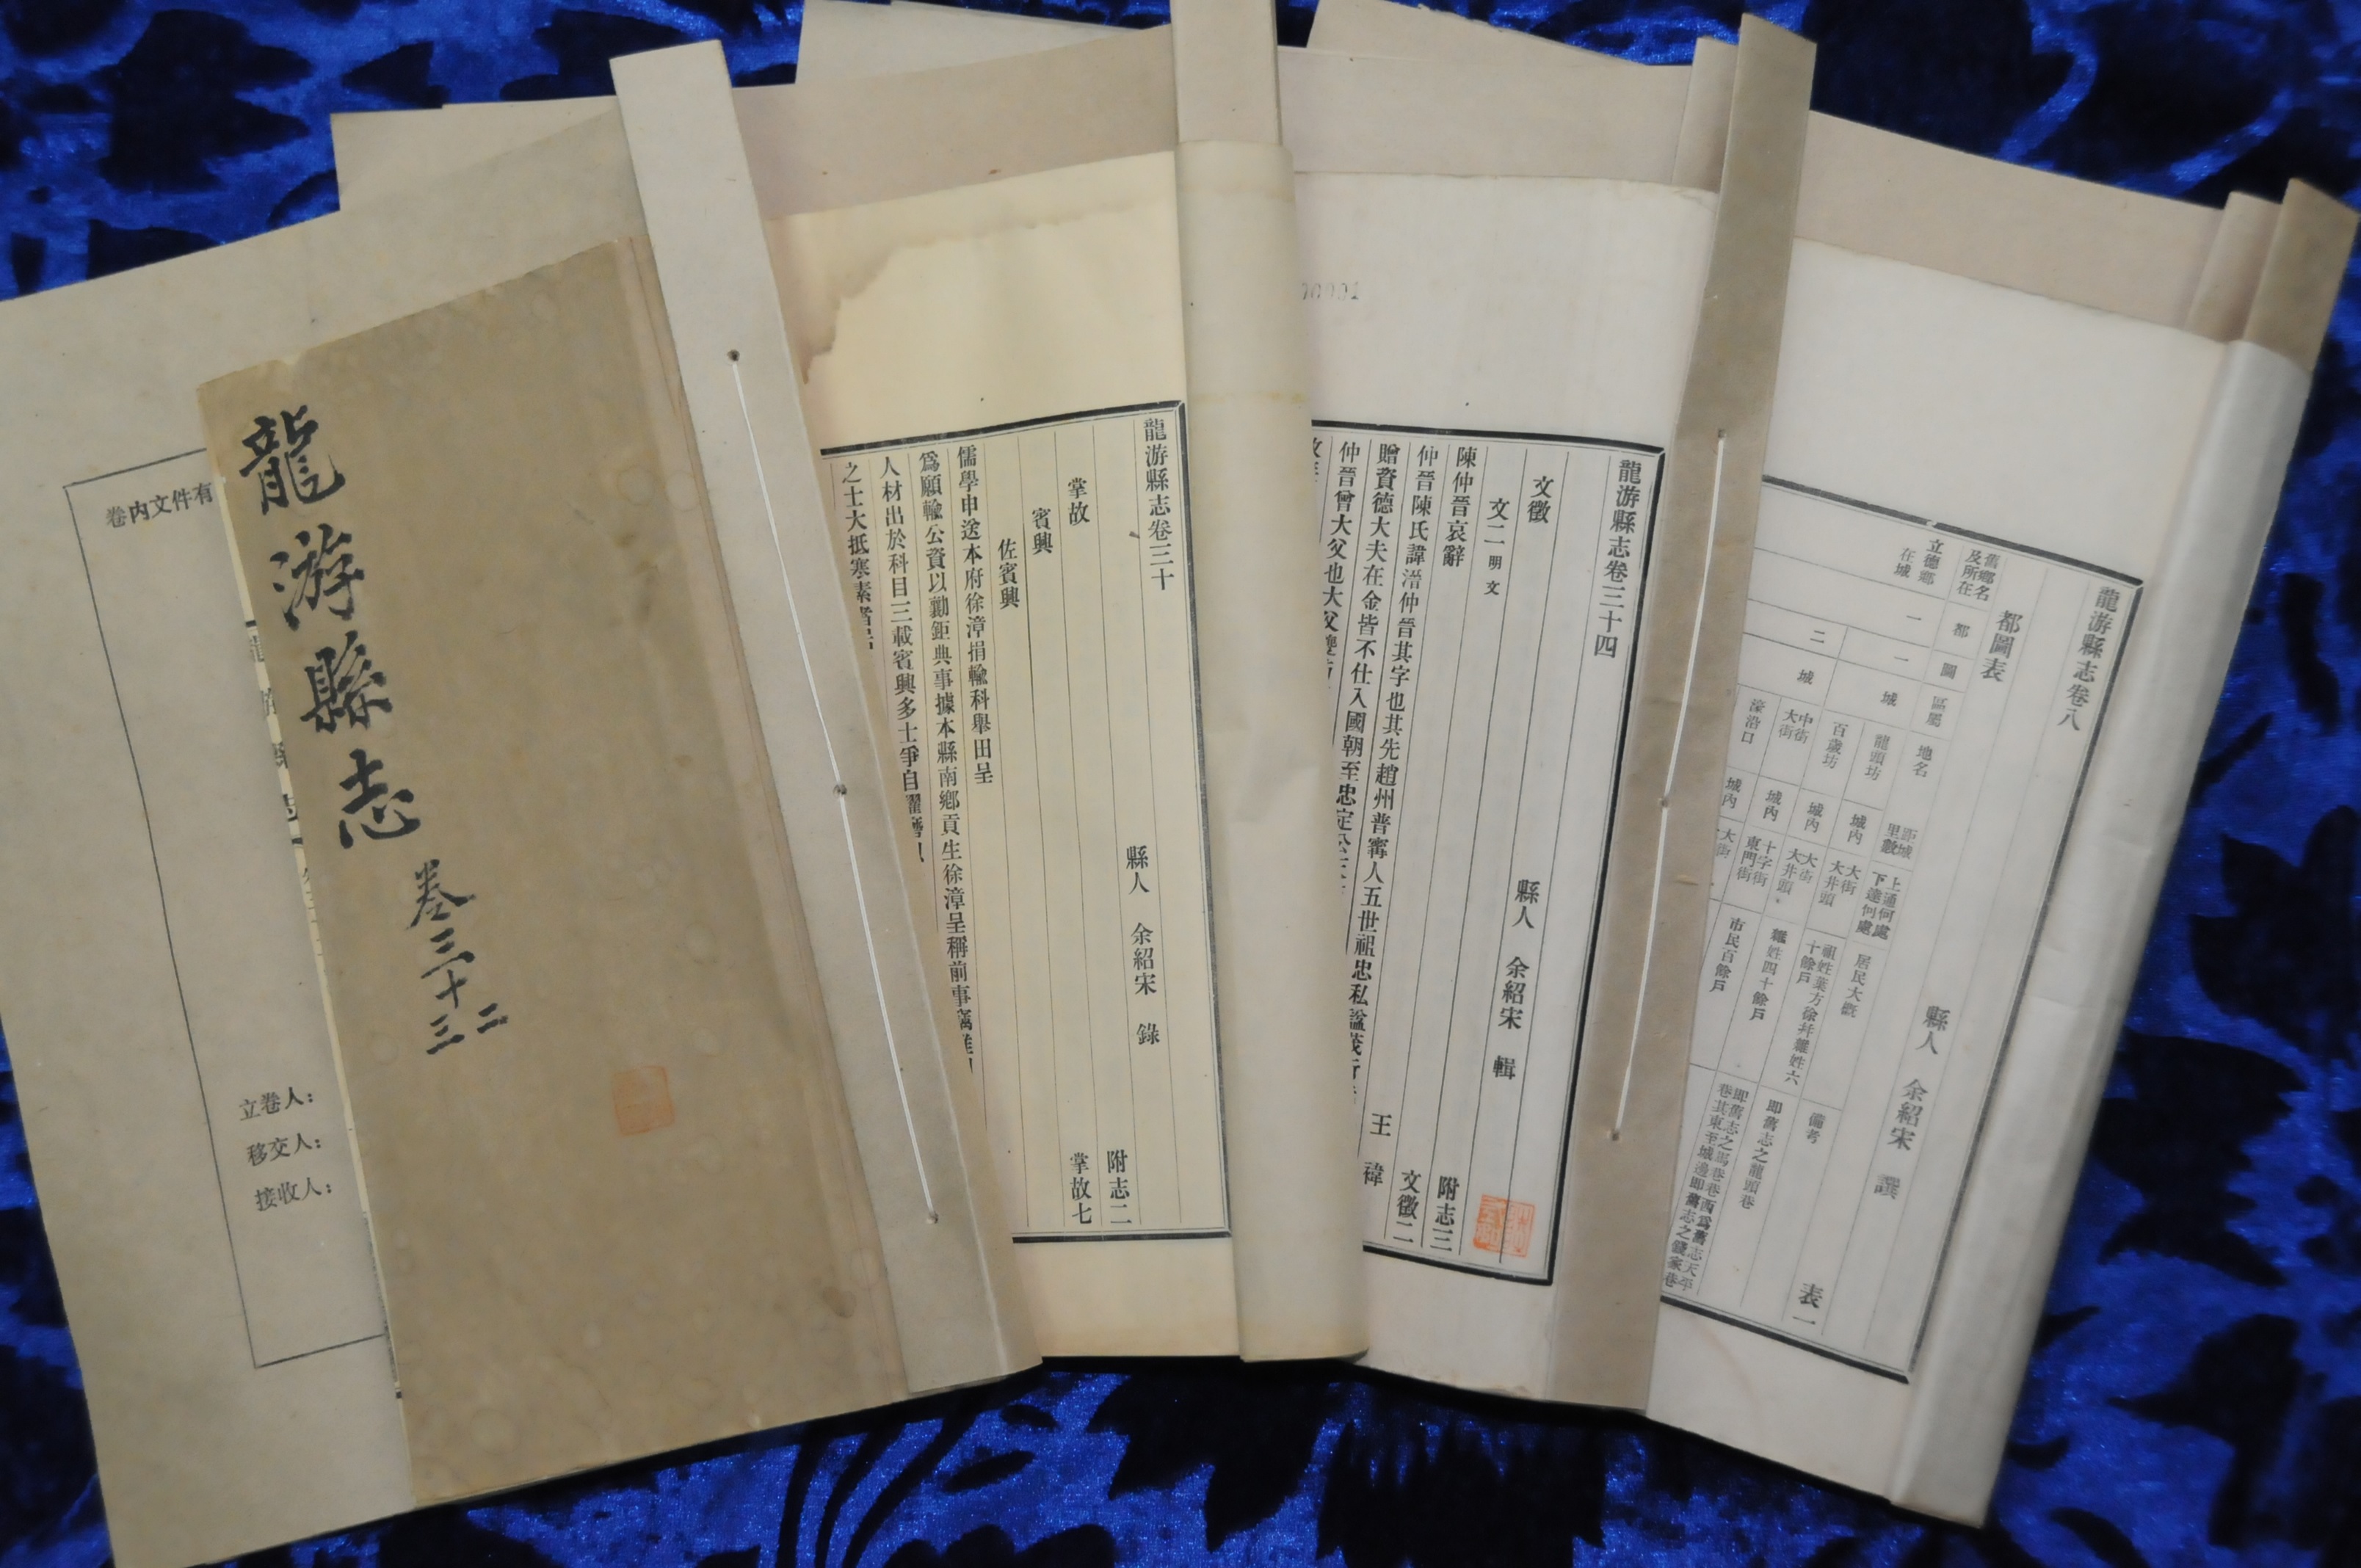 龍游縣志
卷三十二
三
卷内文件有
立卷人：
移交人：
接收人：
龍游縣志卷三十
縣人　余紹宋　錄
附志二
掌故
掌故七
賓興
佐賓興
儒學申送本府徐漳捐輸科舉田呈
爲願輸公資以勷鉅典事據本縣南鄉貢生徐漳呈稱前事
人材出於科目三載賓興多士爭自
之士大抵寒素者
龍游縣志卷三十四
縣人　余紹宋　輯
附志三
文徵
文徵二
文二　明文
陳仲晉哀辭
王禕
仲晉陳氏諱溍仲晉其字也其先趙州普寗人五世祖忠私諡茂
贈資德大夫在金皆不仕入國朝至忠定公
仲晉曾大父也大父
龍游縣志卷八
縣人　余紹宋　譔
表一
都圖表
舊鄉名及所在　都　圖　區屬　地名　距城里數　上通何處下達何處　居民大概　備考
立德鄉在城　一　一　城　龍頭坊　城內　大街大井頭　祖姓葉方徐幷雜姓六十餘戶　即舊志之龍頭巷
二　城　百歲坊　城內　大街大井頭
中街大街　城內　十字街東門街　雜姓四十餘戶
濠沿口　城內　大街　市民百餘戶